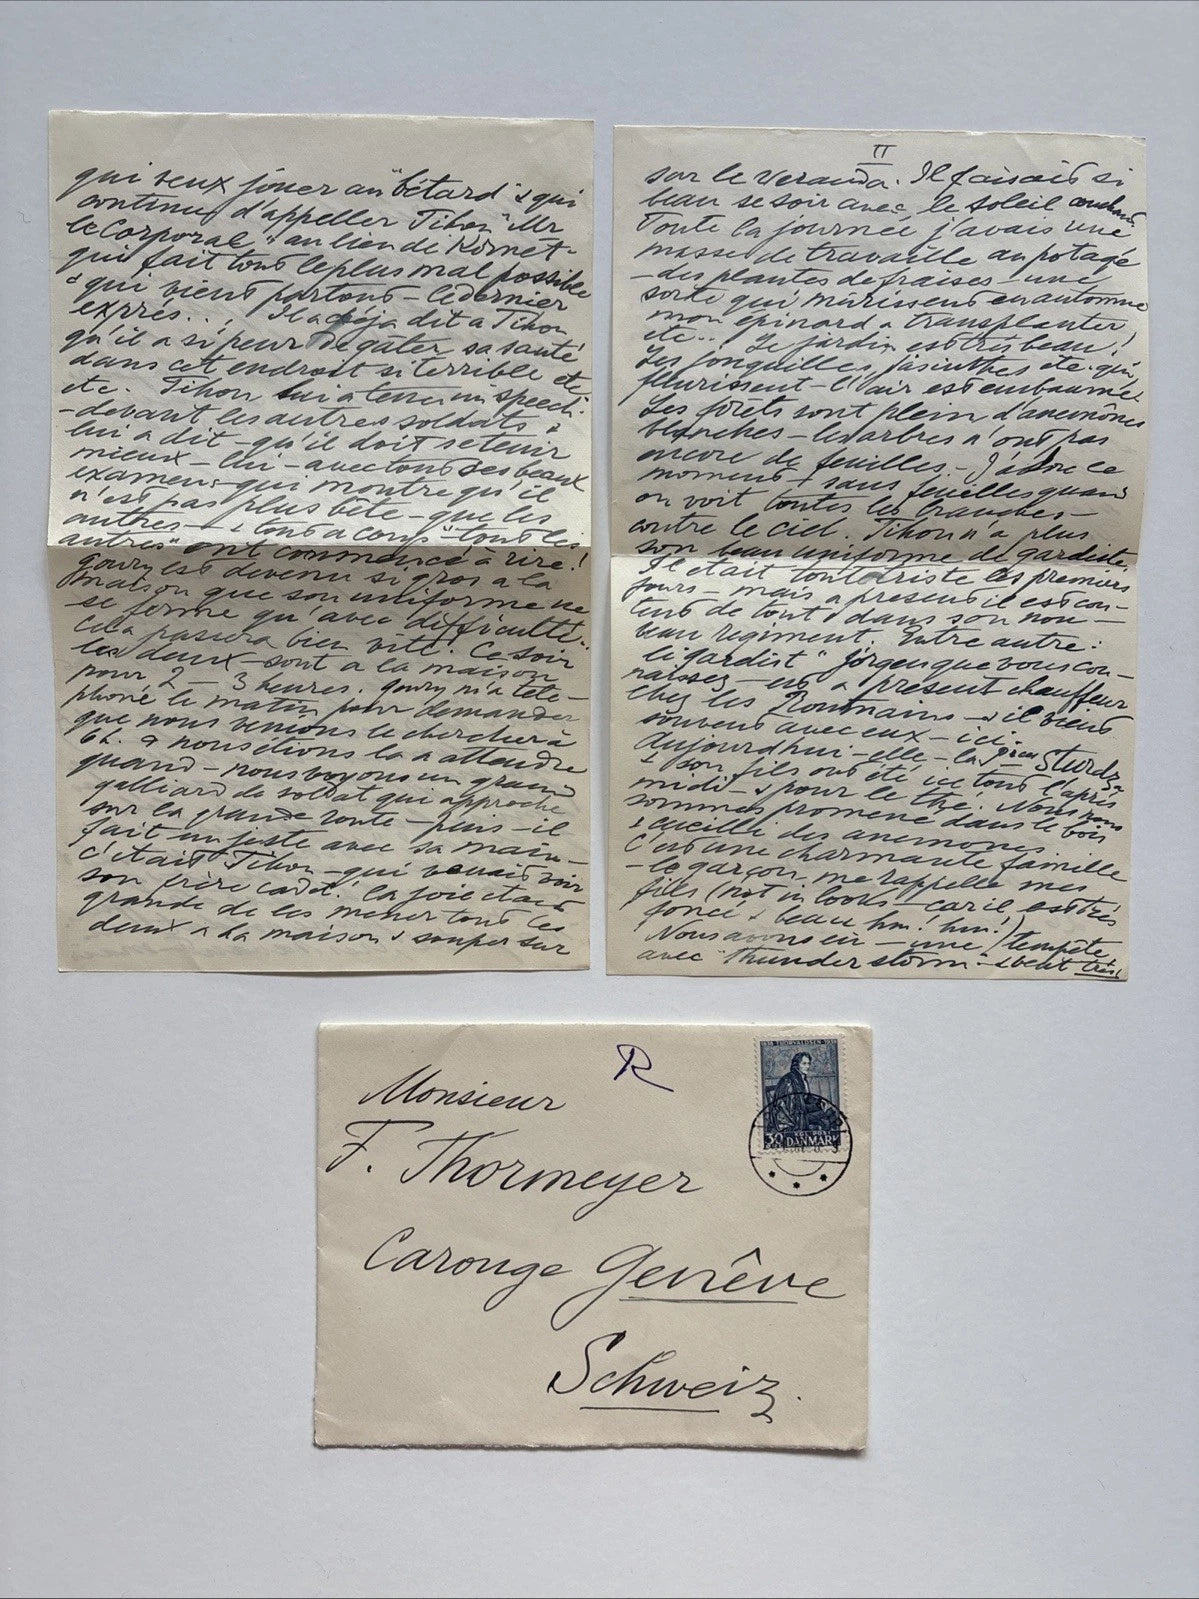 qui veux jouer au "bétard" & qui
continue d'appeller Tihon "Mr
le Corporal" au lieu de Kornet-
qui fait tout le plus mal possible
& qui vient partout - le dernier
exprès... Il a déja dit a Tihon
qu'il a si peur de gâter sa santé
dans cet endroit si terrible etc
etc. Tihon lui a tenu un speech-
- devant les autres soldats &
lui a dit - qu'il doit se tenir
mieux - lui - avec tous ses beaux
examens - qui montre qu'il
n'est pas plus bête - que les
autres - & tout a coup "tous les
autres" ont commencé à rire!
Goury est devenu si gros a la
maison que son uniforme ne
se ferme qu'avec difficulté.
Cela passera bien vite. Ce soir
les deux - sont a la maison
pour 2 - 3 heures. Goury m'a télé-
phoné le matin pour demander
que nous venions le chercher à
6h. & nous étions la a attendre
quand - nous voyons un grand
galliard de soldat qui approche
sur la grande route - puis - il
fait un jeste avec sa main -
c'était Tihon - qui venait voir
son frère cadet! La joie était
grande de les mener tous les
deux a la maison & souper sur
II
sur le veranda. Il faisait si
beau se soir avec le soleil couchant
Toute la journée j'avais une
masse de travaille au potage
- des plantes de fraises - une
sorte qui mûrissent en automne
mon épinard a transplanter
etc... Le jardin est très beau!
Les jonquilles, jasinthes etc. qui
fleurissent - l'air est embaumé.
Les forêts sont plein d'anemônes
blanches - les arbres n'ont pas
encore de feuilles. - J'adore ce
moment - sans feuilles quand
on voit toutes les branches -
contre le ciel. Tihon n'a plus
son beau uniforme de gardiste.
Il était tout triste les premiers
jours - mais a présent il est con-
tent de tout dans son nou-
veau regiment. Entre autre:
le "gardist" Jörgen que vous con-
naissez - est a présent chauffeur
chez les Roumains - & il vient
souvent avec eux - ici.
Aujourd'hui - elle - la Pcesse Sturdza
& son fils ont été ici tout l'après
midi - & pour le thé. Nous nous
sommes promené dans le bois
& cueille des anemones.
C'est une charmante famille
- le garçon me rappelle mes
fils (not in looks - car il est très
foncé & beau hm! hm!)
Nous avons eu - une tempête
avec "thunderstorm" - & vent très
R
1838 THORVALDSEN 1938
30
KGL POST
DANMARK
Monsieur
F. Thormeyer
Carouge Genêve
Schweiz.